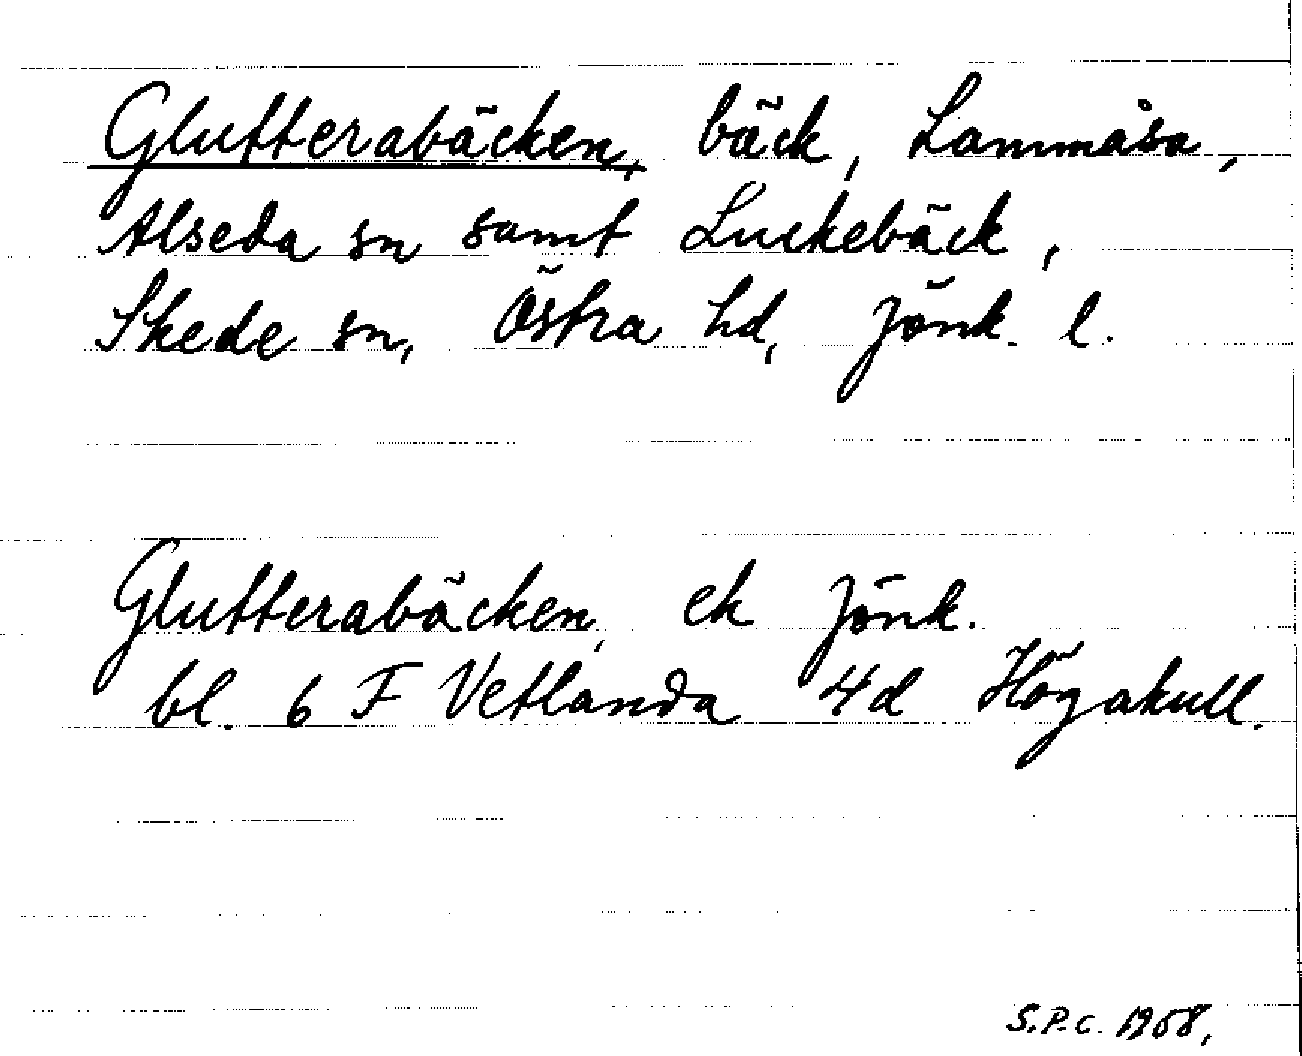 Glutterabäcken, bäck, Lammåsa,
Alseda sn samt Luckebäck,
Skede sn, Östra hd, Jönk. l.
Glutterabäcken, ek Jönk.
bl. 6 F Vetlanda 4d Högakull.
S.P.C. 1968,